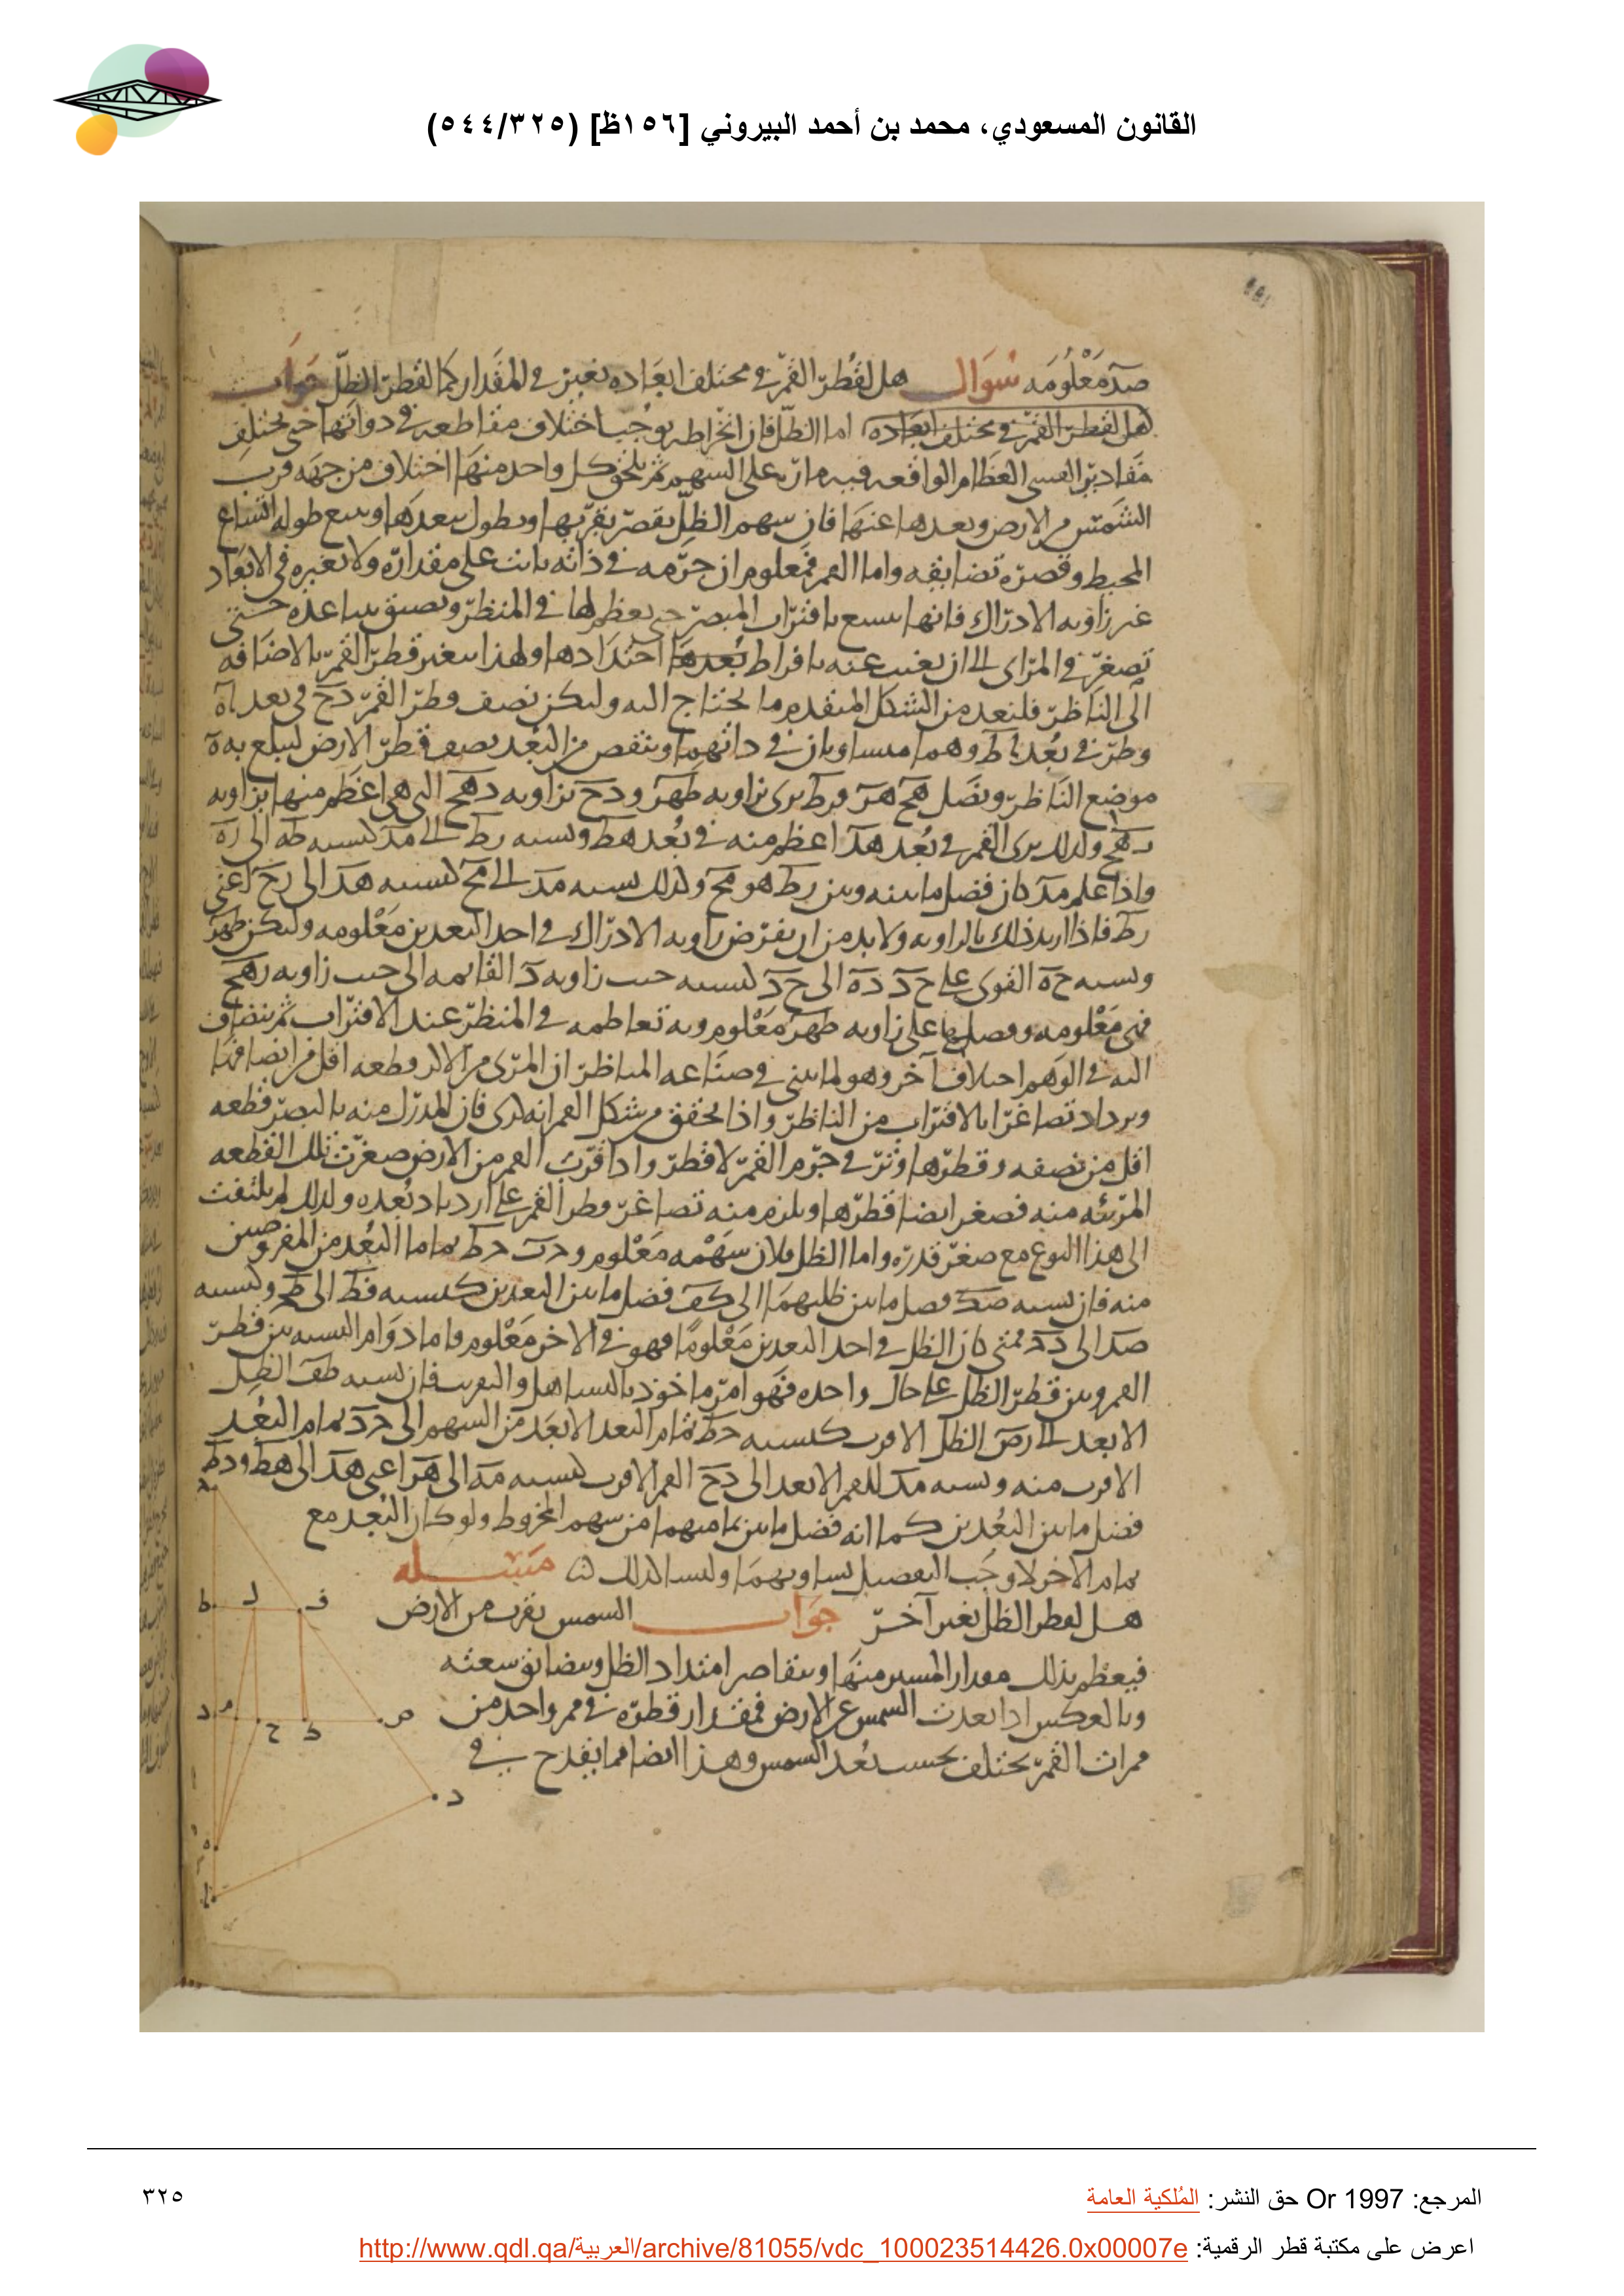 القانون المسعودي، محمد بن أحمد البيروني [١٥٦ظ] (٥٤٤/٣٢٥)
صد معلومه سوال هل لقطر القمر في مختلف ابعاده تغير في المقدار كما لقطر الظل جواب
هل لقطر القمر في مختلف ابعاده اما الظل فان انخراطه يوجب اختلاف مقاطعه في دواتها حتى يختلف
مقادير القسى العظام الواقعه فيه مارة على السهم ثم يلحق كل واحد منها اختلاف من جهه قرب
الشمس من الارض وبعدها عنها فان سهم الظل يقصر بقربها ويطول ببعدها ويتبع طوله اتساع
المحيط وقصره تضايقه واما القمر فمعلوم ان جرمه في ذاته ثابت على مقداره ولا يغيره في الابعاد
غير زاويه الادراك فانها تتسع باقتراب المبصر حتى يعظم لها في المنظر وتضيق بتباعده حتى
تصغر في المراى الى ان يغيب عنه بافراط بعدها احتدادها ولهذا يتغير قطر القمر بالاضافه
الى الناظر فلنعد من الشكل المتقدم ما نحتاج اليه وليكن نصف قطر القمر دح في بعد اه
وطر في بعد اط وهما متساويان في داتهما وننقص من البعد نصف قطر الارض ليبلع به ه
موضع الناظر ونصل هح هر فرط يرى بزاويه طهر ودح بزاويه دهح التى هى اعظم منها بزاويه
رهح ولذلك يرى القمر في بعد هد اعظم منه في بعد هط ونسبه رط الى مد كنسبه طه الى ده
واذا علم مد كان فضل ما بينه وبين رط هو مح ولذلك نسبه مد الى مح كنسبه هد الى رح اعنى
رط فاذا اريد ذلك بالزاويه ولا بد من ان يفرض زاويه الادراك في احد البعدين معلومه وليكن طهر
ونسبه حه القوى على حد ده الى حد كنسبه جيب زاويه د القائمه الى جيب زاويه دهح
فهى معلومه وفضلها على زاويه طهر معلوم وبه تعاظمه في المنظر عند الاقتراب ثم ينضاف
اليه في الوهم اختلاف آخر وهو لما تبين في صناعه المناظر ان المرى من الاكر قطعه اقل من انصافها
ويزداد تصاغرا بالاقتراب من الناظر واذا تحقق من شكل القمر انه كرى فان المدرك منه بالبصر قطعه
اقل من نصفه وقطرها وتر في جرم القمر لا قطر واذا قرب القمر من الارض صغرت تلك القطعه
المرئيه منه فصغر ايضا قطرها ويلزم منه تصاغر قطر القمر على ازدياد بعده ولذلك لم يلتفت
الى هذا النوع مع صغر قدره واما الظل فلان سهمه معلوم و حد حط تماما البعدين المفروضين
منه فان نسبه صك فضل ما بين ظليهما الى كف فضل ما بين البعدين كنسبه فط الى طح ونسبه
صد الى دح فمتى كان الظل في احد البعدين معلوما فهو في الاخر معلوم واما دوام النسبه بين قطر
القمر وبين قطر الظل على حال واحده فهو امر ماخوذ بالتساهل والتقريب فان نسبه طف الظل
الابعد الى دص الظل الاقرب كنسبه حط تمام البعد الابعد من السهم الى حد تمام البعد
الاقرب منه ونسبه مد للقمر الابعد الى دح القمر الاقرب كنسبه مه الى هر اعنى هد الى هط ودط
فضل ما بين البعدين كما انه فضل ما بين تماميهما من سهم المخروط ولو كان البعد مع
تمام الاخر لاوجب التفصيل تساويهما وليسا كذلك مسئله
هل لقطر الظل تغير آخر جواب الشمس تقرب من الارض
فيعظم بذلك مقدار المستنير منها ويتقاصر امتداد الظل ويتضايق سعته
وبالعكس اذا بعدت الشمس عن الارض فمقدار قطره في ممر واحد من
ممرات القمر يختلف بحسب بعد الشمس وهذا ايضا مما يقدح في
ط ل ف
د م ح ك ص
د
ه
المرجع: Or 1997 حق النشر: المُلكية العامة
٣٢٥
اعرض على مكتبة قطر الرقمية: http://www.qdl.qa/العربية/archive/81055/vdc_100023514426.0x00007e